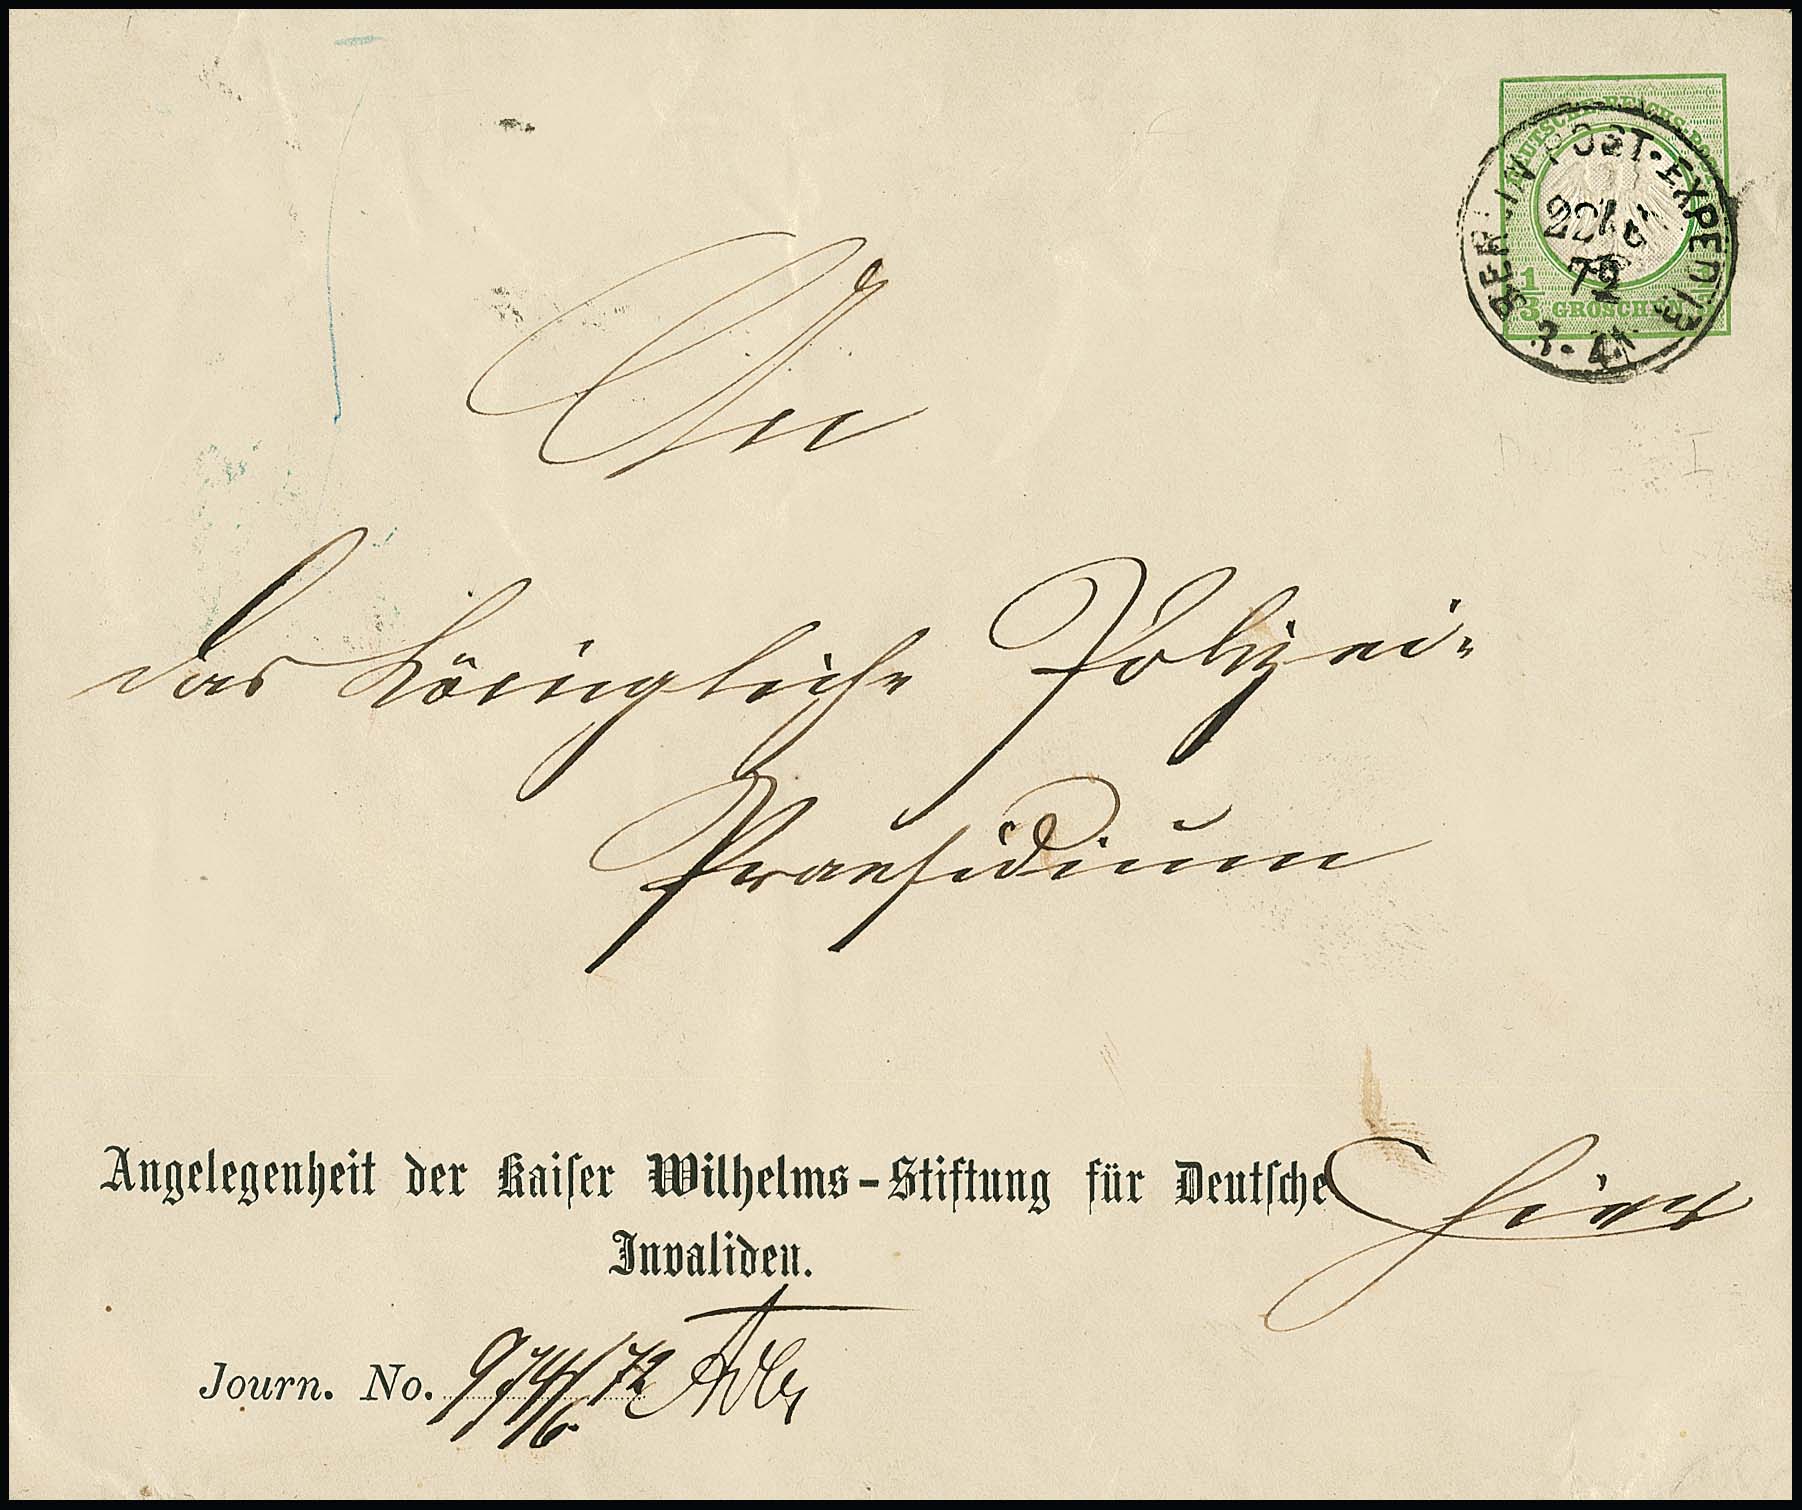 DEUTSCHE REICHS-POST
1/3 GROSCHEN 1/3
BERLIN POST-EXPED. 18
22 6
72
An
das Königliche Polizei-
Praesidium
Hier
Angelegenheit der Kaiser Wilhelms-Stiftung für Deutsche
Invaliden.
Journ. No. 974/6 72